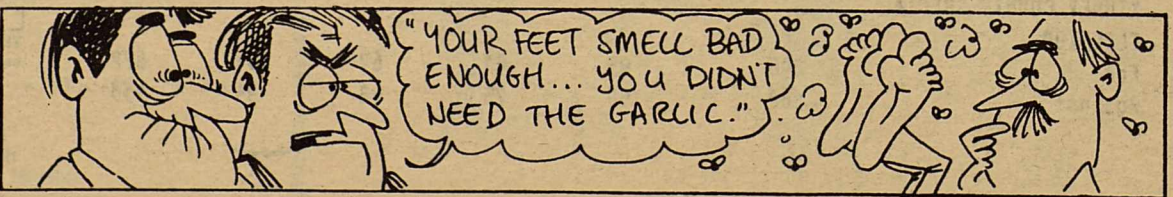 "YOUR FEET SMELL BAD
ENOUGH... YOU DIDN'T
NEED THE GARLIC."